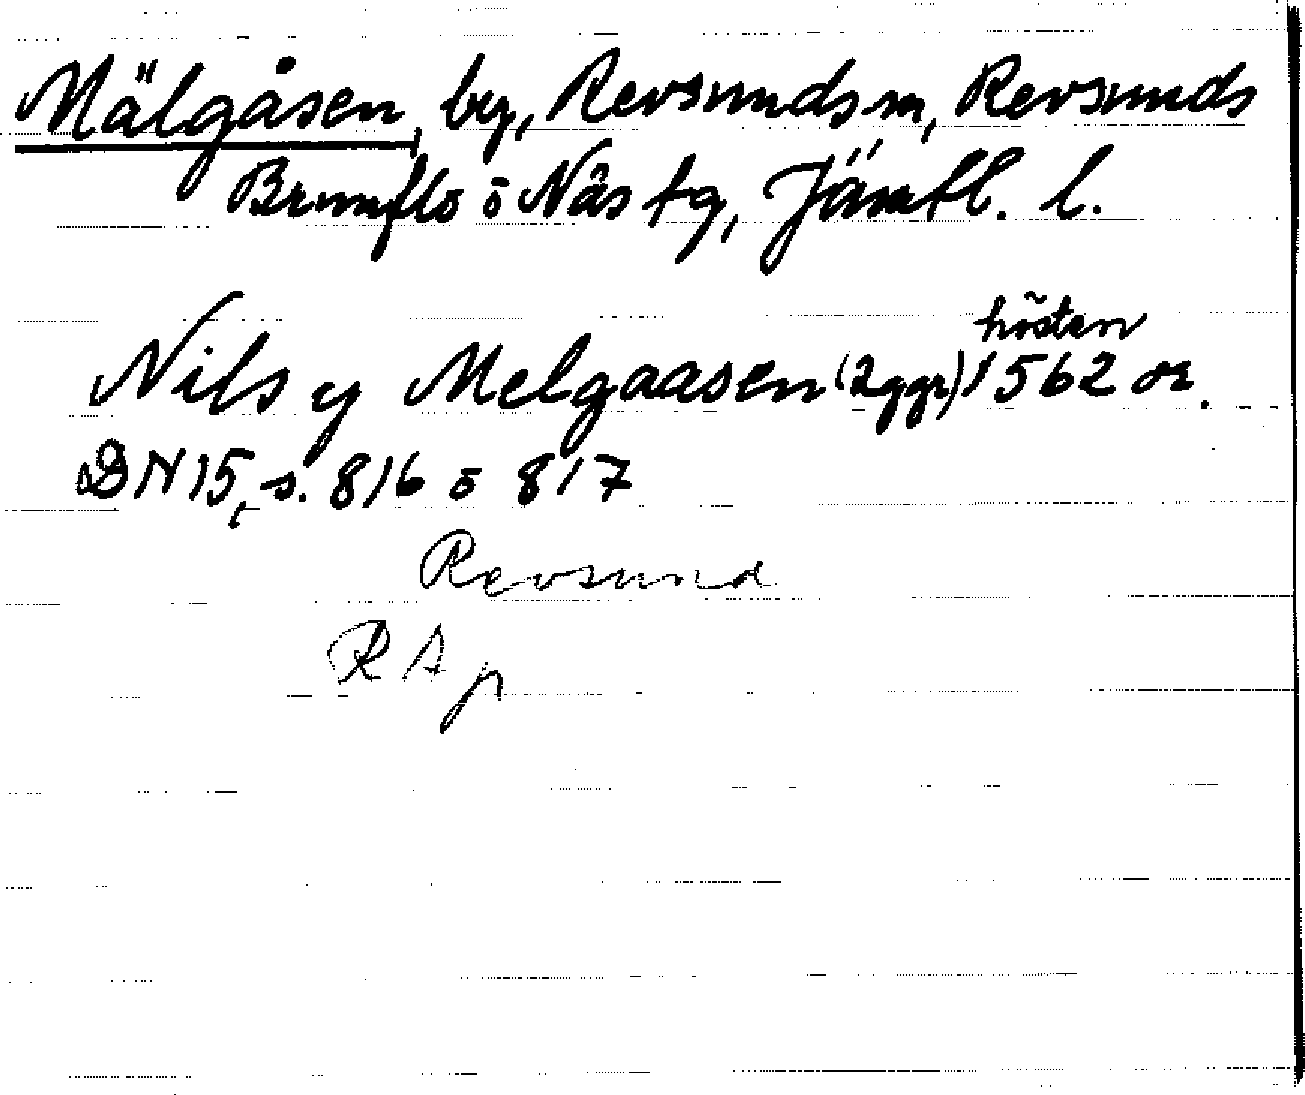 Mälgåsen, by, Revsunds sn, Revsunds
Brunflo o Näs tg, Jämtl. l.
hösten
Nils y Melgaasen (2ggr) 1562 or.
DN 15, s. 816 o 817
Revsund
RAp